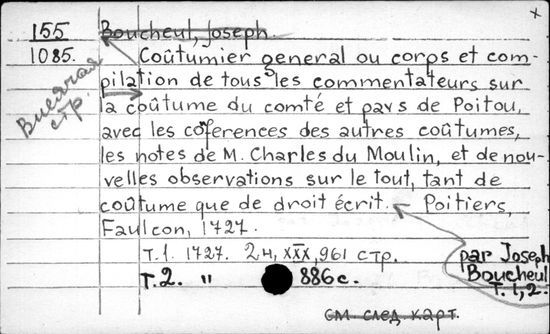 155 Boucheul, Joseph.
1085. Coûtumier general ou corps et com-
pilation de tous les commentateurs sur
la coûtume du comté et pays de Poitou,
avec les coferences des autres coûtumes,
les notes de M. Charles du Moulin, et de nou-
velles observations sur le tout, tant de
coûtume que de droit écrit. Poitiers,
Faulcon, 1727.
т.1. 1727. 2н, XXX, 961 стр.
т.2. " 886 с.
par Joseph
Boucheul
т. 1, 2.
см. след. карт.
стр.